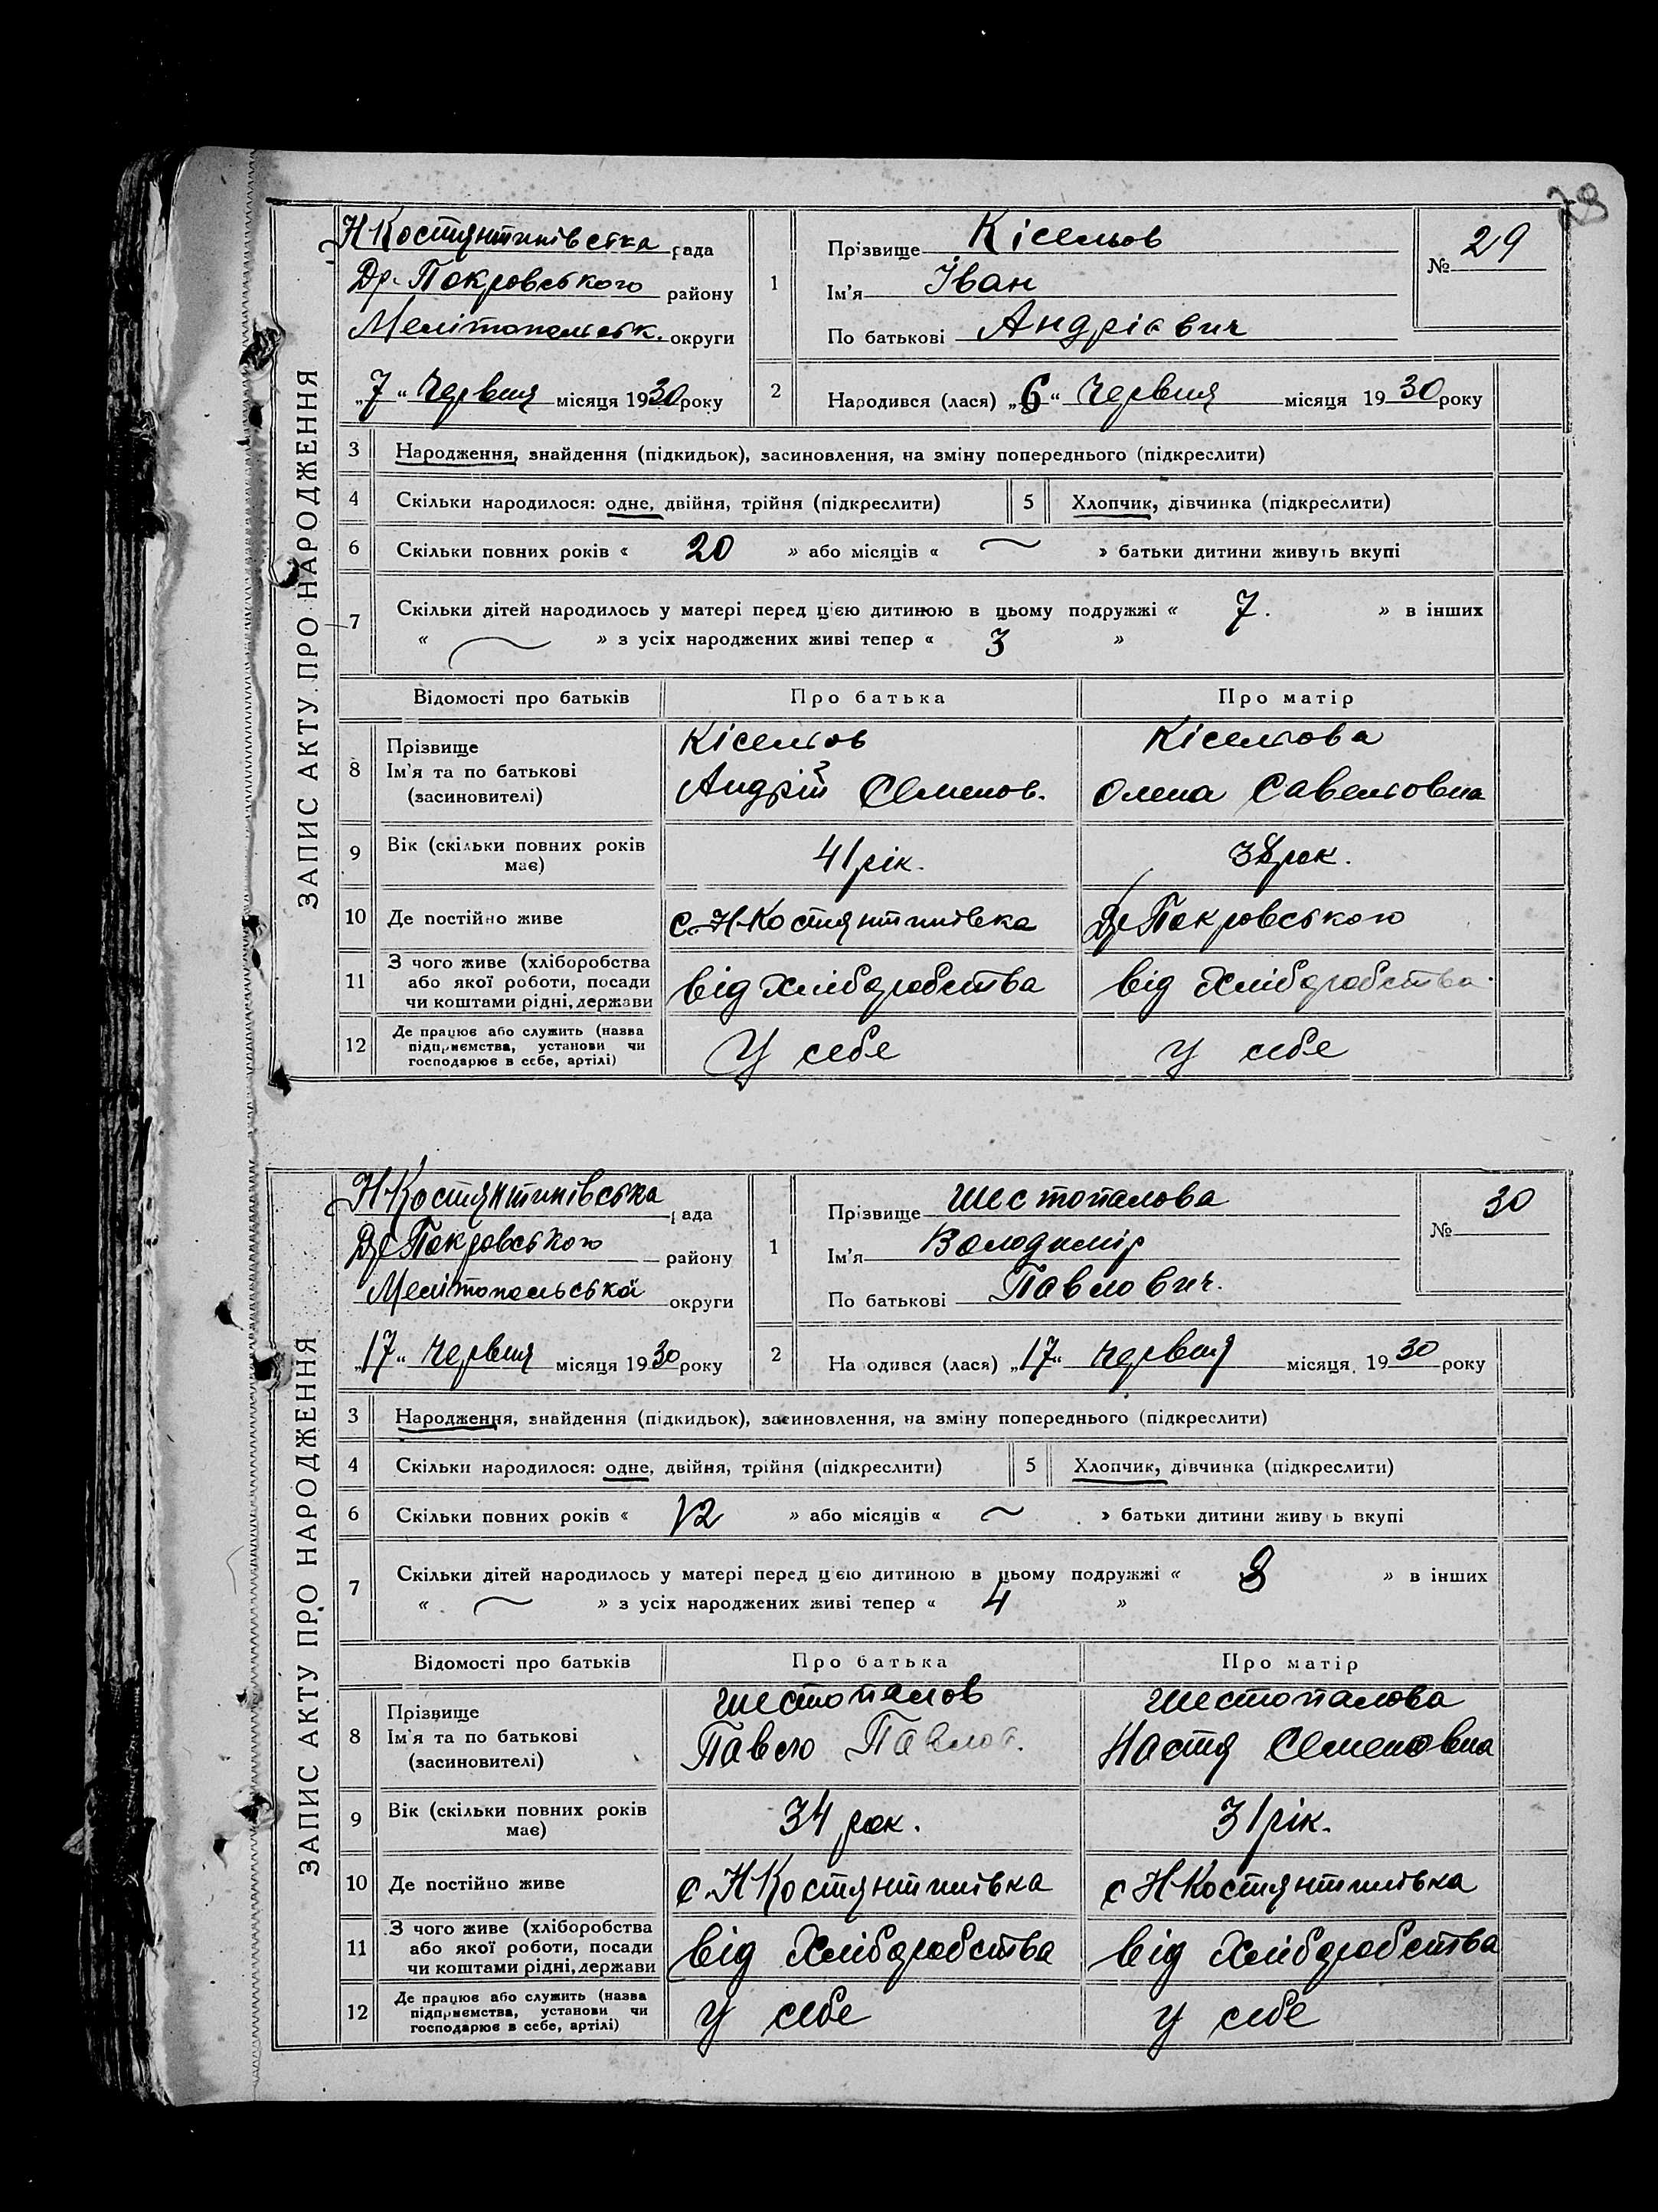 ЗАПИС АКТУ ПРО НАРОДЖЕННЯ
Н Костянтинівська рада
Др. Покровського району
Мелітопольськ. округи
„7“ червня місяця 1930 року
1
Прізвище Кісельов
Ім'я Іван
По батькові Андрієвич
№ 29
2
Народився (лася) „6“ червня місяця 1930 року
3 Народження, знайдення (підкидьок), засиновлення, на зміну попереднього (підкреслити)
4 Скільки народилося: одне, двійня, трійня (підкреслити) 5 Хлопчик, дівчинка (підкреслити)
6 Скільки повних років « 20 » або місяців « ~ » батьки дитини живуть вкупі
7 Скільки дітей народилось у матері перед цією дитиною в цьому подружжі « 7. » в інших
« ~ » з усіх народжених живі тепер « 3 »
Відомості про батьків Про батька Про матір
8 Прізвище
Ім'я та по батькові
(засиновителі)
Кісельов
Андрій Семенов.
Кісельова
Олена Савельовна
9 Вік (скільки повних років
має)
41 рік.
38 рок.
10 Де постійно живе с. Н-Костянтинівка Др Покровського
11 З чого живе (хліборобства
або якої роботи, посади
чи коштами рідні, держави
від хліборобства
від хліборобства.
12 Де працює або служить (назва
підприємства, установи чи
господарює в себе, артілі)
У себе
У себе
ЗАПИС АКТУ ПРО НАРОДЖЕННЯ
Н-Костянтинівська рада
Др Покровського району
Мелітопольська округи
„17“ червня місяця 1930 року
1
Прізвище Шестопалова
Ім'я Володимір
По батькові Павлович.
№ 30
2
На одився (лася) „17“ червня місяця 1930 року
3 Народження, знайдення (підкидьок), засиновлення, на зміну попереднього (підкреслити)
4 Скільки народилося: одне, двійня, трійня (підкреслити) 5 Хлопчик, дівчинка (підкреслити)
6 Скільки повних років « 12 » або місяців « ~ » батьки дитини живу ь вкупі
7 Скільки дітей народилось у матері перед цією дитиною в цьому подружжі « 8 » в інших
« ~ » з усіх народжених живі тепер « 4 »
Відомості про батьків Про батька Про матір
8 Прізвище
Ім'я та по батькові
(засиновителі)
Шестопалов
Павло Павлов.
Шестопалова
Настя Семеновна
9 Вік (скільки повних років
має)
34 рок.
31 рік.
10 Де постійно живе с. Н Костянтинівка с Н-Костянтинівка
11 З чого живе (хліборобства
або якої роботи, посади
чи коштами рідні, держави
від хліборобства
від хліборобства
12 Де працює або служить (назва
підприємства, установи чи
господарює в себе, артілі)
У себе
У себе